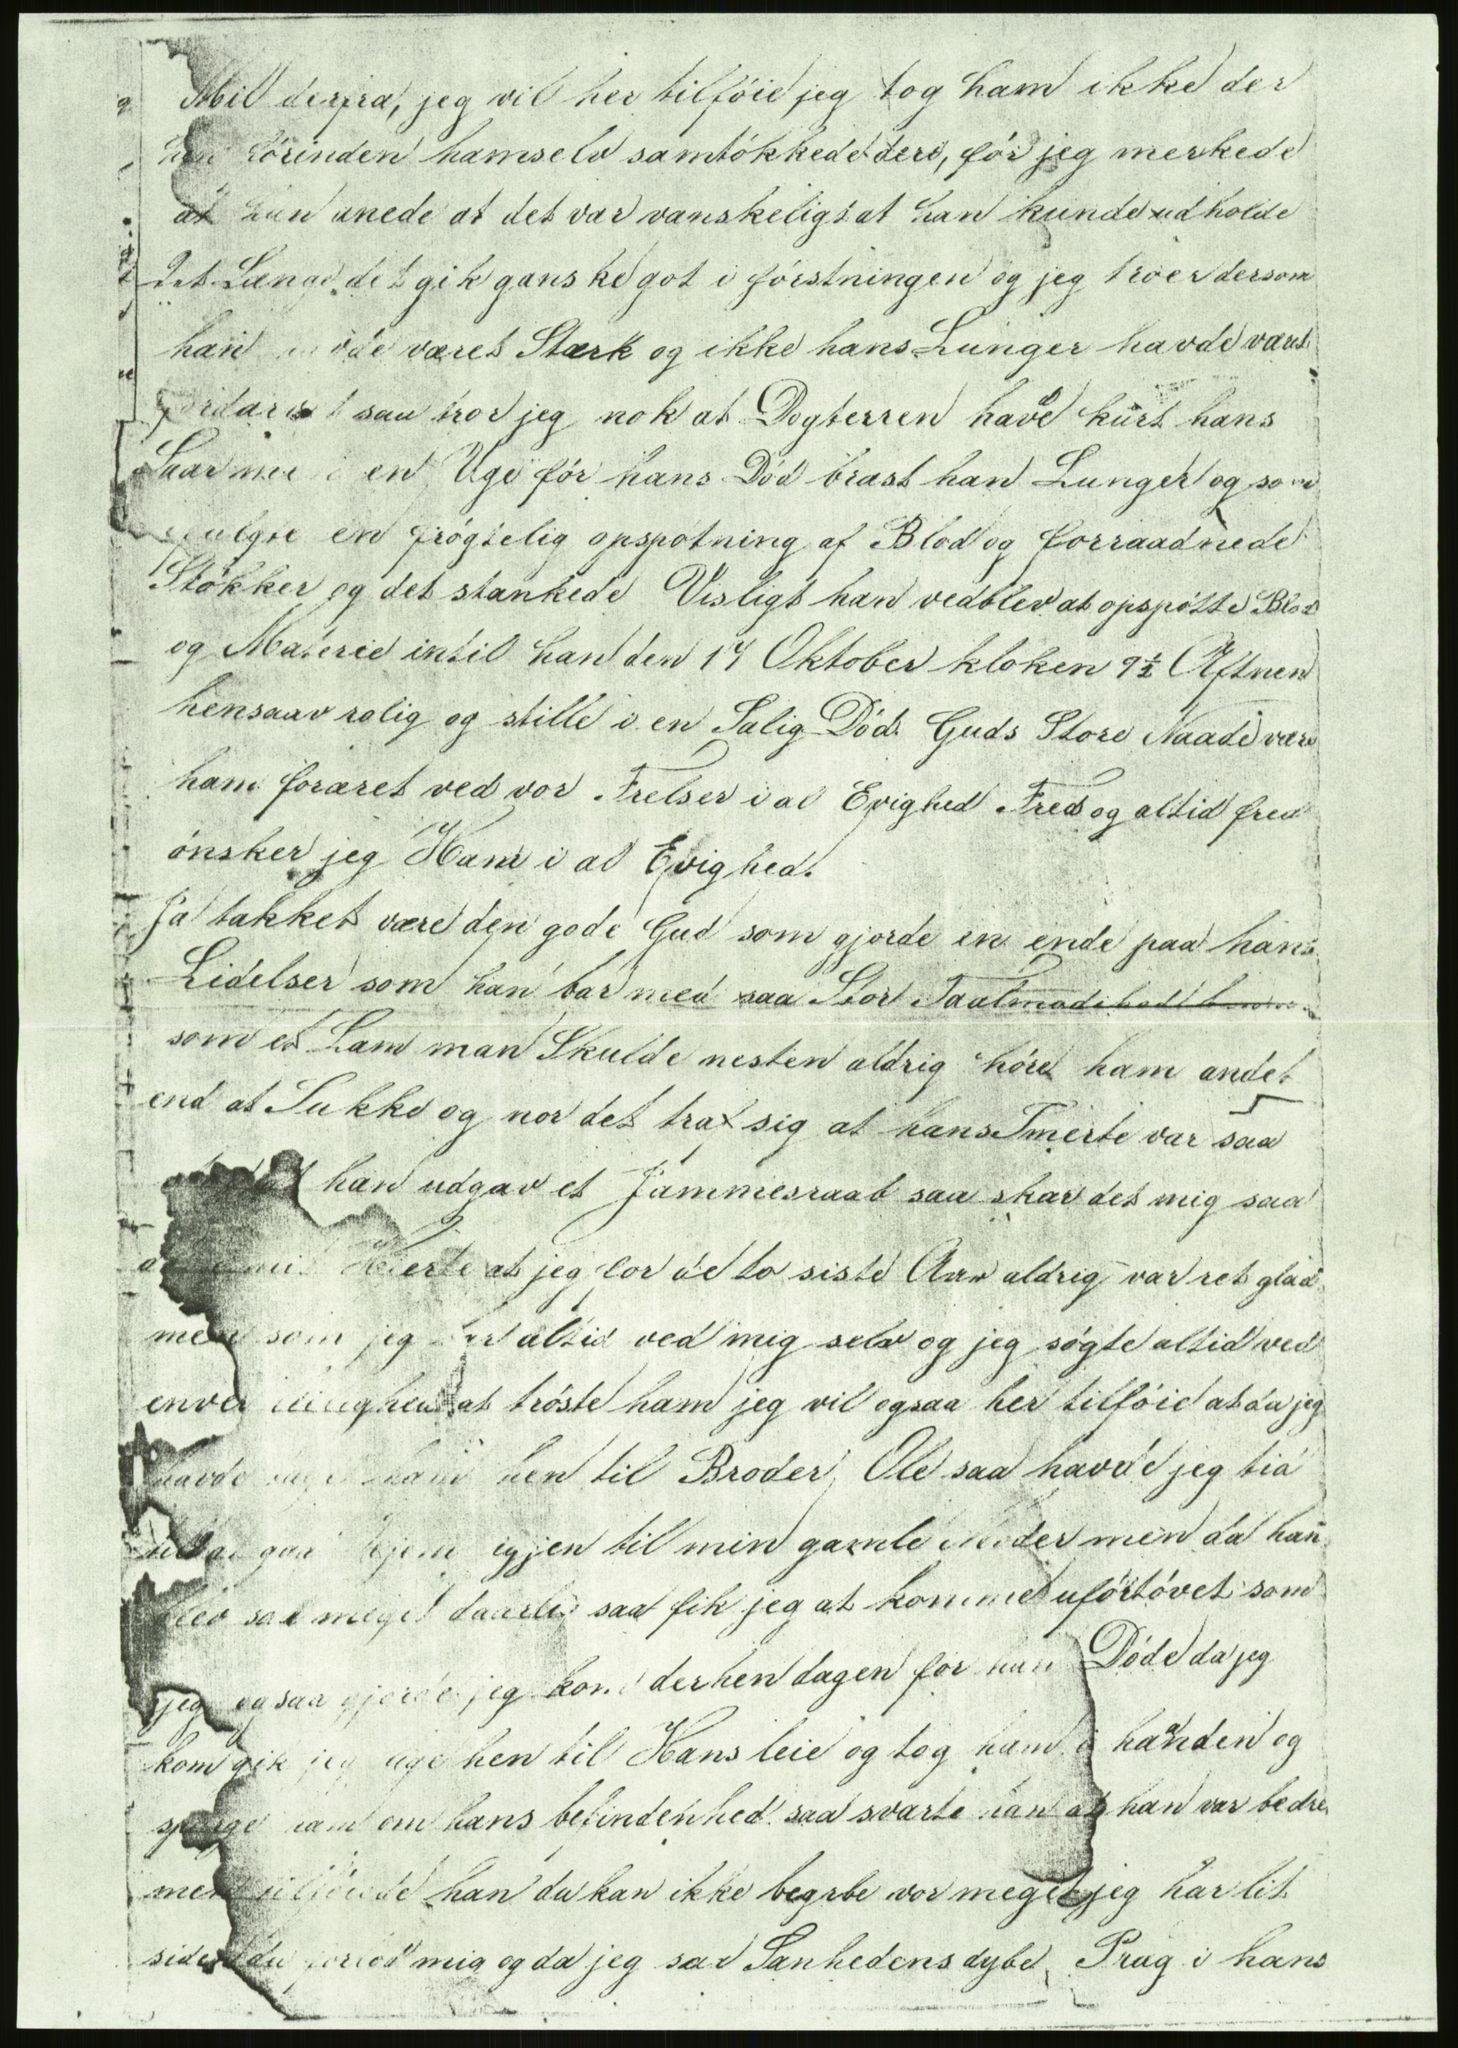 Mil derfra, jeg vil her tilföie jeg tog ham ikke der
hen förinden hamselv samtökkede deri, för jeg merkede
at han anede at det var vanskeligt at han kunde udholde
det Længe, det gik ganske got i förstningen og jeg troer dersom
han havde været Stærk og ikke hans Lunger havde været
fordærvet saa tror jeg nok at Dogterren havde kurt hans
Saar men i en Uge för hans Död brast han Lunger og som
fulgte en frögtelig opspotning af Blod og forraadnede
Stökker og det stankede Visligt han vedblev at opspötte Blod
og Materie intil han den 17 Oktober kloken 9½ Aftnen
hensaav rolig og stille i en Salig Död. Guds Store Naade være
ham foræret ved vor Frelser i al Evighed Fred og altid fred
önsker jeg Ham i al Evighed.
Ja takket være den gode Gud som gjorde en ende paa hans
Lidelser som han bar med saa Stor Taalmodihed
som et Lam man Skulde nesten aldrig höre ham andet
end at Sukke og nor det traf sig at hans Smerte var saa
han udgav et Jammesraab saa skar det mig saa
mit Hjerte at jeg for de to siste Aar aldrig var ret glad
men som jeg bar altid ved mig selv og jeg sögte altid ved
enver at tröste ham jeg vil ogsaa her tilföie at da jeg
havde ham hen til Broder Ole saa havde jeg tid
gaa hjem igjen til min gamle Moder men da han
blev saa meget daarlig saa fik jeg at komme ufortövet som
jeg ogsaa gjorde jeg kom derhen dagen för han Döde da jeg
kom gik jeg hen til Hans leie og tog ham i haanden og
spurgte ham om hans befindenhed saa svarte han at han var bedre
men tilföiede han du kan ikke begrbe vor meget jeg har lit
siden du forlod mig og da jeg saa Sanhedens dybe Præg i hans